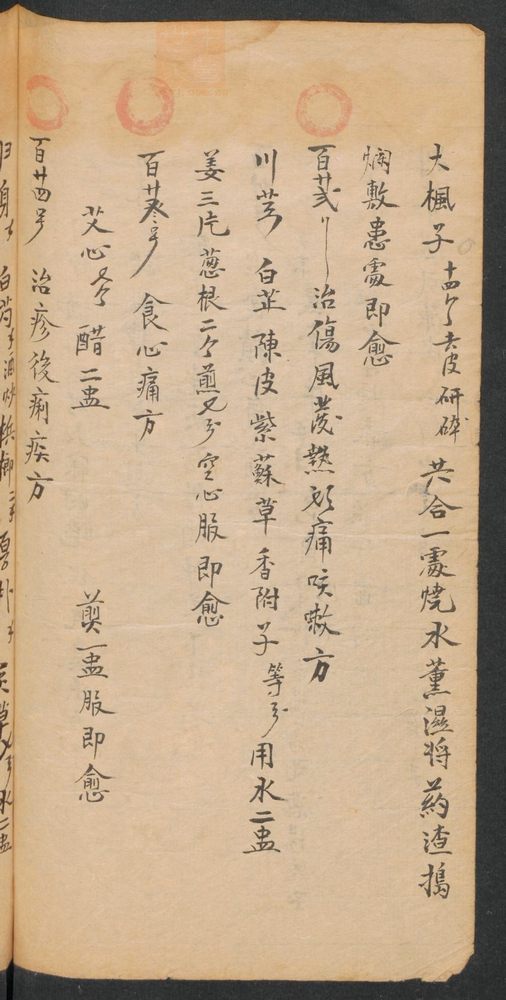 大楓子十四个去皮研碎共合一處燒水薰濕將药渣搗
爛敷患處即愈
百廿弍号治傷風發熱頭痛咳嗽方
川芎白芷陳皮紫蘇草香附子等分用水二盅
姜三片葱根二个煎又分空心服即愈
百廿叁号食心痛方
艾心醋二盅煎一盅服即愈
百廿四号治疹後痢疾方
归身白芍酒炒